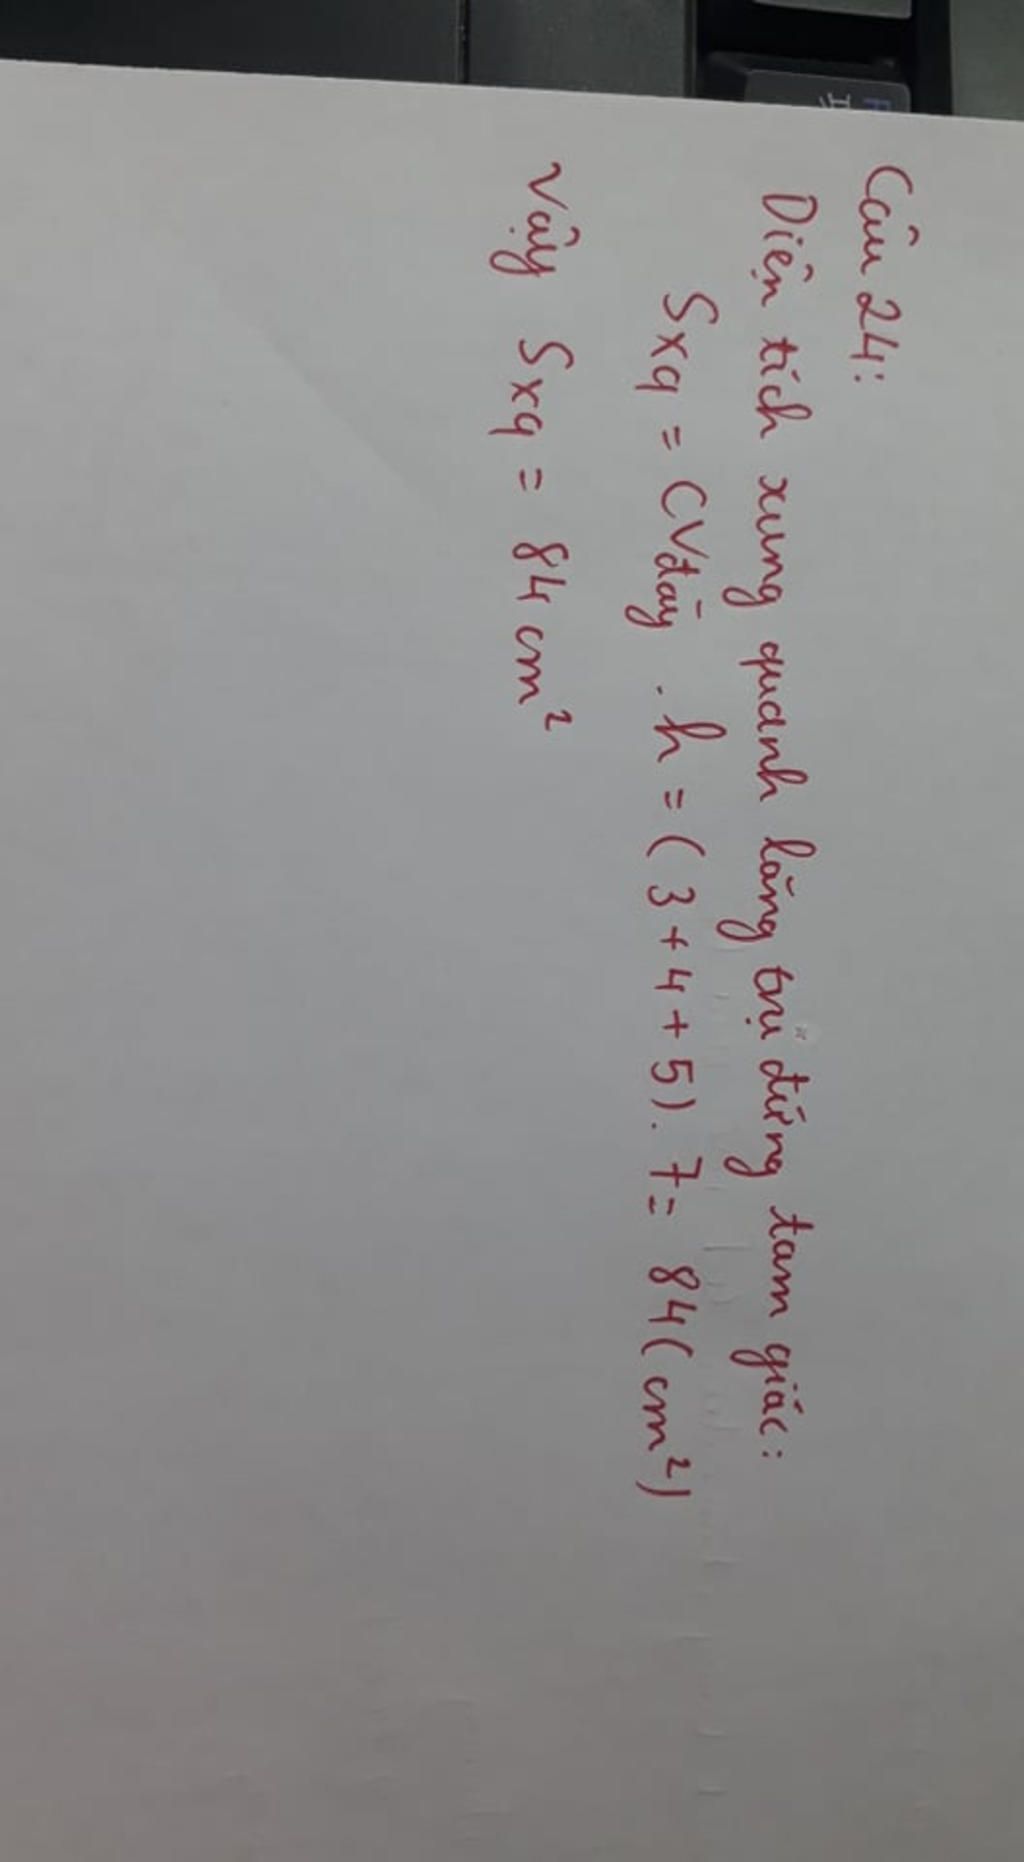 Câu 24:
Diện tích xung quanh lăng trụ đứng tam giác:
Sxq = CVđáy . h = ( 3 + 4 + 5 ) . 7 = 84 ( cm² )
Vậy Sxq = 84 cm²